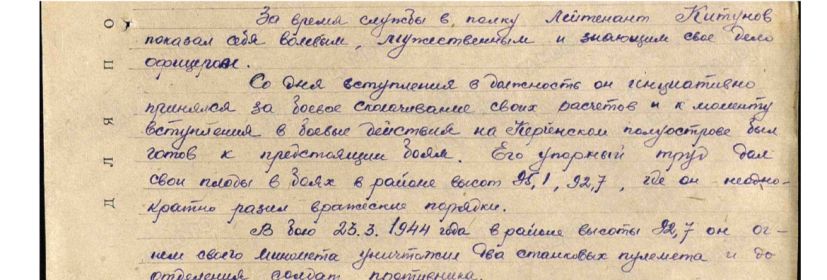 За время службы в полку Лейтенант Китунов
показал себя волевым, мужественным и знающим свое дело
офицером.
Со дня вступления в должность он инициативно
принялся за боевое сколачивание своих расчетов и к моменту
вступления в боевые действия на Керченском полуострове был
готов к предстоящим боям. Его упорный труд дал
свои плоды в боях в районе высот 95,1, 92,7, где он неодно-
кратно разил вражеские порядки.
В бою 23.3.1944 года в районе высоты 92,7 он ог-
нем своего миномета уничтожил два станковых пулемета и до
отделения солдат противника.
ДЛЯ ПО